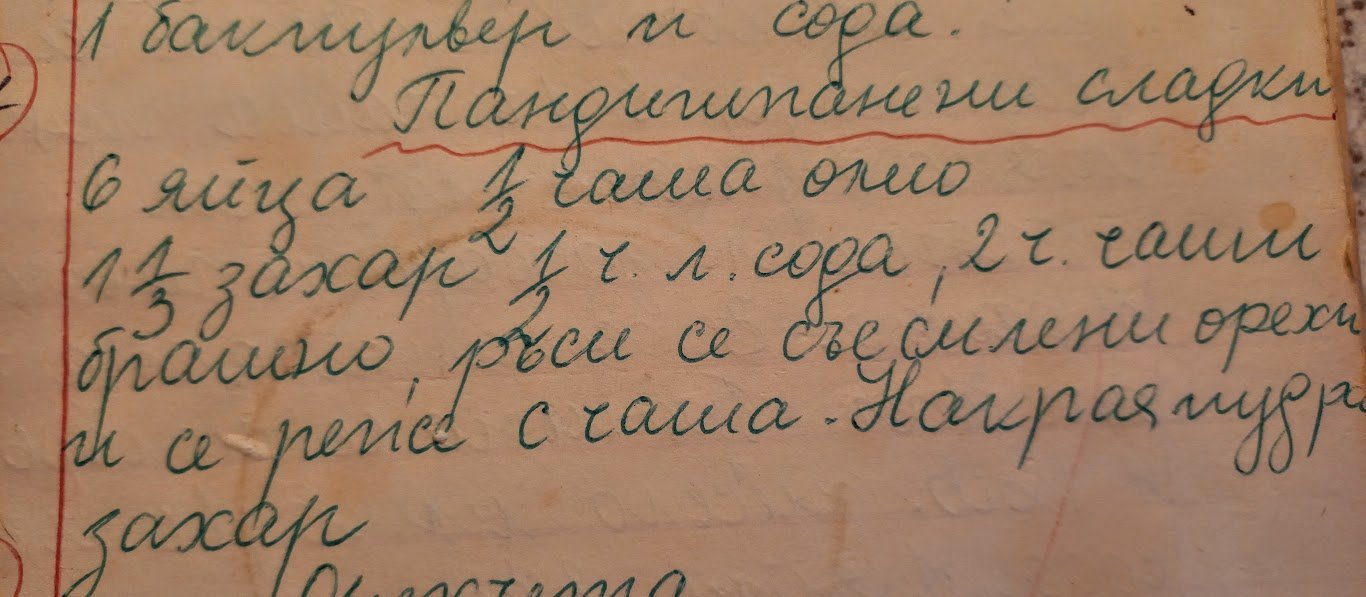 1 бакпулвер и сода.
Пандишпанени сладки
6 яйца 1/2 чаша олио
1 1/3 захар 1/2 ч. л. сода, 2 ч. чаши
брашно, ръси се със смлени орехи
и се реже с чаша. Накрая пудра
захар